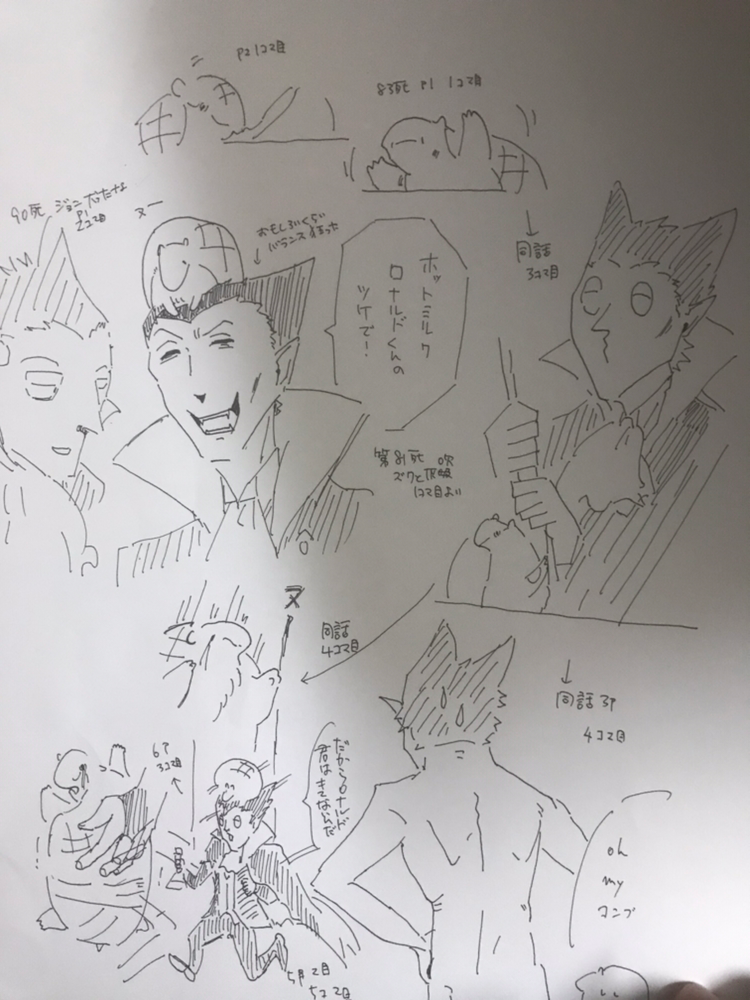 P2 1コマ目
83死 P1 1コマ目
90死 ジョンだったな
P1
2コマ目
ヌー
おもしろいくらい
バランスすまった
ホットミルク
ロナルドくんの
ツケで!
↓
同話
3コマ目
第81死
1コマ目よい
ヌ
同話
4コマ目
↓
同話 3P
4コマ目
6P
3コマ目
だからロナルド
君はきてないんだ
oh
my
コンブ
5P 2目
5コマ目